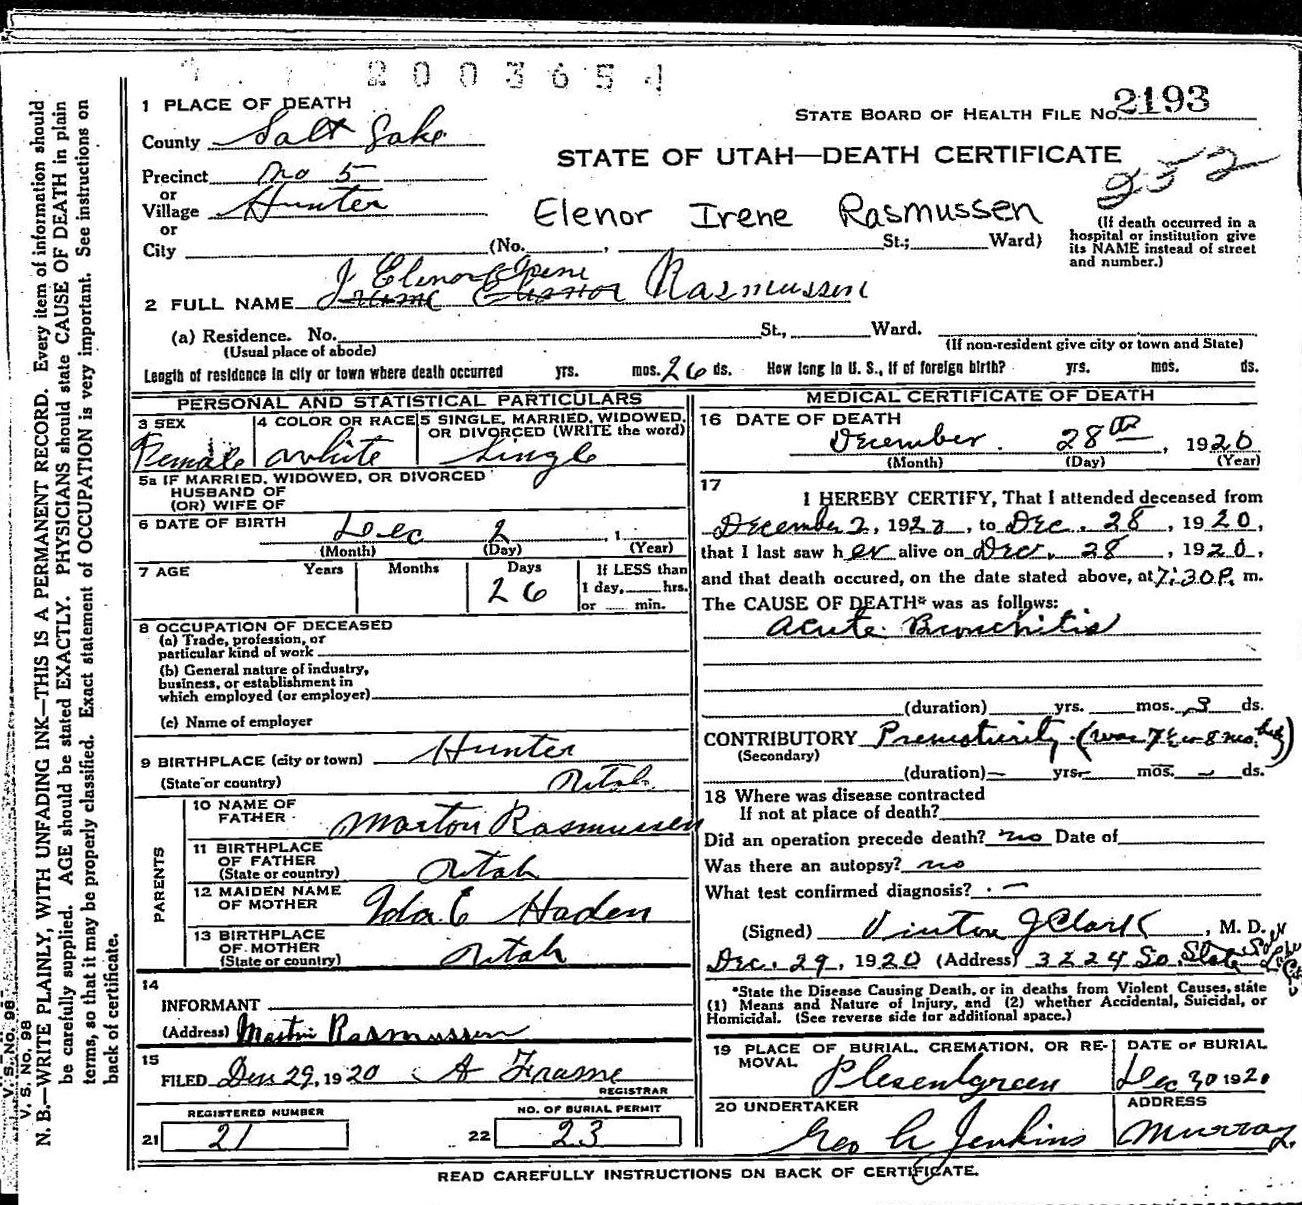 2003654
1 PLACE OF DEATH
STATE BOARD OF HEALTH FILE No. 2193
County Salt Lake
STATE OF UTAH—DEATH CERTIFICATE
252
Precinct No 5
or
Village Hunter
Elenor Irene Rasmussen
or
City (No. , St.; Ward)
(If death occurred in a
hospital or institution give
its NAME instead of street
and number.)
Elenor Irene
2 FULL NAME Rasmussen
(a) Residence. No. St., Ward.
(Usual place of abode) (If non-resident give city or town and State)
Length of residence in city or town where death occurred yrs. mos. 26 ds. How long in U. S., if of foreign birth? yrs. mos. ds.
PERSONAL AND STATISTICAL PARTICULARS
3 SEX Female
4 COLOR OR RACE white
5 SINGLE, MARRIED, WIDOWED,
OR DIVORCED (WRITE the word)
Single
5a IF MARRIED, WIDOWED, OR DIVORCED
HUSBAND OF
(OR) WIFE OF
6 DATE OF BIRTH Dec 2 , 1
(Month) (Day) (Year)
7 AGE Years Months Days If LESS than
26 1 day, hrs.
or min.
8 OCCUPATION OF DECEASED
(a) Trade, profession, or
particular kind of work
(b) General nature of industry,
business, or establishment in
which employed (or employer)
(c) Name of employer
9 BIRTHPLACE (city or town) Hunter
(State or country) Utah
PARENTS
10 NAME OF
FATHER Marton Rasmussen
11 BIRTHPLACE
OF FATHER
(State or country) Utah
12 MAIDEN NAME
OF MOTHER Ida E Haden
13 BIRTHPLACE
OF MOTHER
(State or country) Utah
14
INFORMANT
(Address) Martin Rasmussen
15
FILED Dec 29, 1920 A Frame
REGISTRAR
REGISTERED NUMBER
21 21
NO. OF BURIAL PERMIT
22 23
MEDICAL CERTIFICATE OF DEATH
16 DATE OF DEATH
December 28th, 1920
(Month) (Day) (Year)
17
I HEREBY CERTIFY, That I attended deceased from
December 2, 1920, to Dec. 28, 1920,
that I last saw her alive on Dec. 28, 1920,
and that death occured, on the date stated above, at 7:30 P. m.
The CAUSE OF DEATH* was as follows:
Acute Bronchitis
(duration) yrs. mos. 3 ds.
CONTRIBUTORY Prematurity (was 7½ or 8 mo.
(Secondary)
(duration) — yrs. — mos. — ds.
18 Where was disease contracted
If not at place of death?
Did an operation precede death? no Date of
Was there an autopsy? no
What test confirmed diagnosis? —
(Signed) Vinton J Clark, M. D.
Dec. 29, 1920 (Address) 3224 So. State Salt Lake City
*State the Disease Causing Death, or in deaths from Violent Causes, state
(1) Means and Nature of Injury, and (2) whether Accidental, Suicidal, or
Homicidal. (See reverse side for additional space.)
19 PLACE OF BURIAL, CREMATION, OR RE-
MOVAL Plesentgreen
DATE OF BURIAL
Dec 30 1920
20 UNDERTAKER
Geo A Jenkins
ADDRESS
Murray
READ CAREFULLY INSTRUCTIONS ON BACK OF CERTIFICATE.
V. S. No. 98
V. S. No. 98
N. B.—WRITE PLAINLY, WITH UNFADING INK—THIS IS A PERMANENT RECORD. Every item of information should
be carefully supplied. AGE should be stated EXACTLY. PHYSICIANS should state CAUSE OF DEATH in plain
terms, so that it may be properly classified. Exact statement of OCCUPATION is very important. See instructions on
back of certificate.